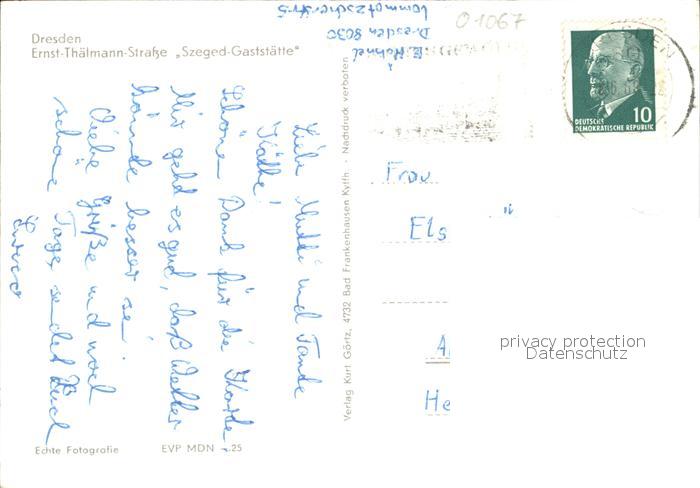 Dresden
Ernst-Thälmann-Straße „Szeged-Gaststätte"
Liebe Mutti und Tande
Käthe!
Schöne Dank für die Karde.
Mir gehd es gud, daß Wetter
könnde besser se
Liebe Grüße und viel
schöne Tage, sendet Euch
Echte Fotografie
EVP MDN -.25
Verlag Kurt Görtz, 4732 Bad Frankenhausen Kyffh. · Nachdruck verboten
01067
E. Hahnel
Dresden 8030
DRESDEN
DEUTSCHE
DEMOKRATISCHE REPUBLIK
10
Frau
Els
He
privacy protection
Datenschutz